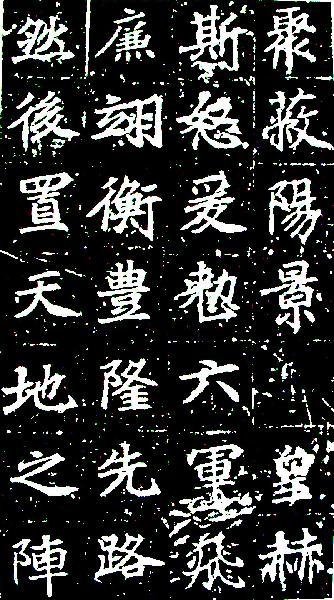 聚蔽陽景皇赫
斯怒爰整六軍飛
廉翊衡豊隆先路
然後置天地之陣